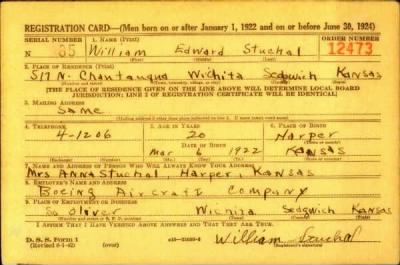 REGISTRATION CARD—(Men born on or after January 1, 1922 and on or before June 30, 1924)
SERIAL NUMBER 1. NAME (Print) ORDER NUMBER
N 85 William Edward Stuchal 12473
(First) (Middle) (Last)
2. PLACE OF RESIDENCE (Print)
517 N. Chautauqua Wichita Sedgwick Kansas
(Number and street) (Town, township, village, or city) (County) (State)
[THE PLACE OF RESIDENCE GIVEN ON THE LINE ABOVE WILL DETERMINE LOCAL BOARD
JURISDICTION; LINE 2 OF REGISTRATION CERTIFICATE WILL BE IDENTICAL]
3. MAILING ADDRESS
Same
[Mailing address if other than place indicated on line 2. If same insert word same]
4. TELEPHONE 5. AGE IN YEARS 6. PLACE OF BIRTH
4-1206 20 Harper
DATE OF BIRTH (Town or county)
Mar 6 1922 Kansas
(Exchange) (Number) (Mo.) (Day) (Yr.) (State or country)
7. NAME AND ADDRESS OF PERSON WHO WILL ALWAYS KNOW YOUR ADDRESS
Mrs Anna Stuchal Harper, Kansas
8. EMPLOYER'S NAME AND ADDRESS
Boeing Aircraft Company
9. PLACE OF EMPLOYMENT OR BUSINESS
So Oliver Wichita Sedgwick Kansas
(Number and street or R. F. D. number) (Town) (County) (State)
I AFFIRM THAT I HAVE VERIFIED ABOVE ANSWERS AND THAT THEY ARE TRUE.
D. S. S. Form 1
(Revised 6-1-42) (over) William Stuchal
(Registrant's signature)